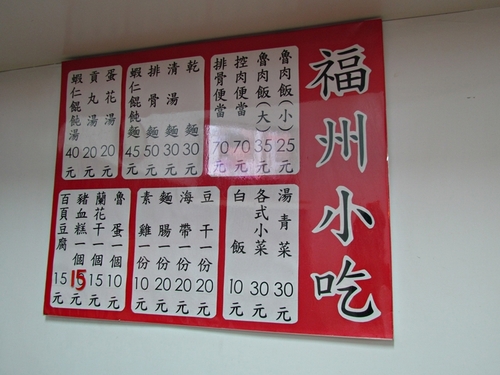 福州小吃
魯肉飯(小)25元
魯肉飯(大)35元
控肉便當70元
排骨便當70元
乾麵30元
清湯麵30元
排骨麵50元
蝦仁餛飩麵45元
蛋花湯20元
貢丸湯20元
蝦仁餛飩湯40元
湯青菜30元
各式小菜30元
白飯10元
豆干一份20元
海帶一份20元
麵腸一份20元
素雞一份10元
魯蛋一個10元
蘭花干一個15元
豬血糕一個15元
百頁豆腐15元